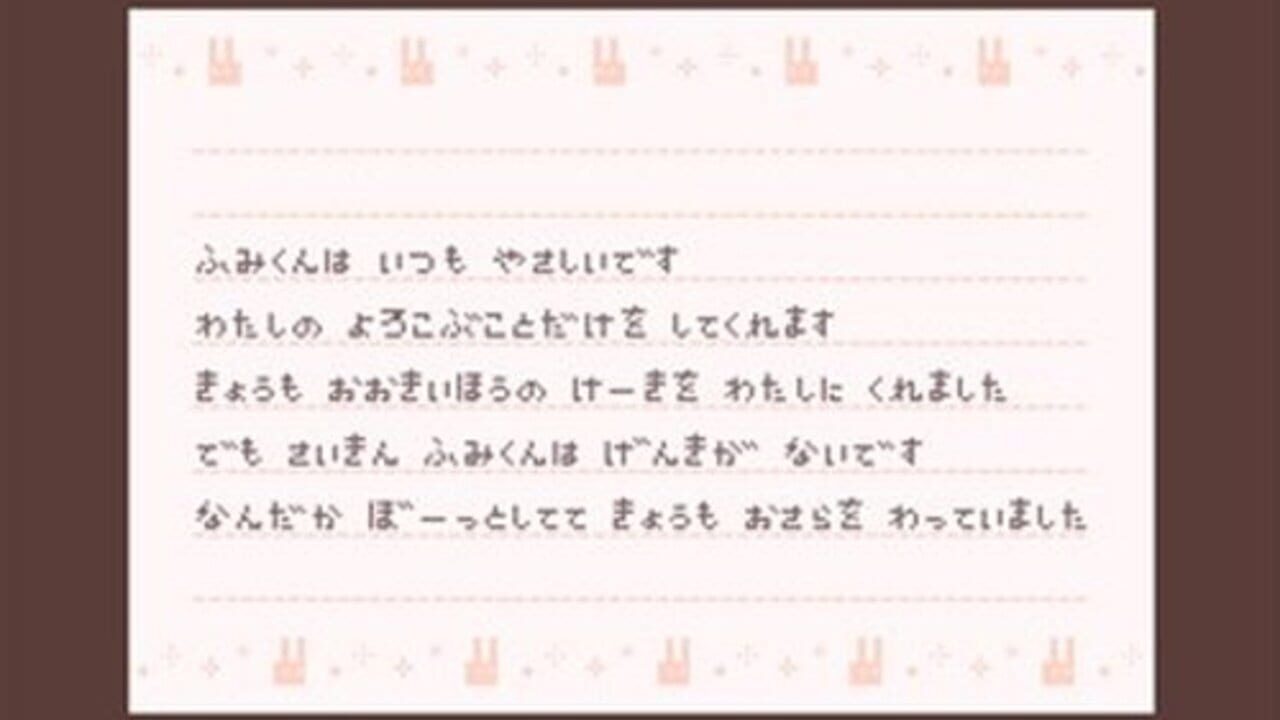 ふみくんは いつも やさしいです
わたしの よろこぶことだけを してくれます
きょうも おおきいほうの けーきを わたしに くれました
でも さいきん ふみくんは げんきが ないです
なんだか ぼーっとしてて きょうも おさらを わっていました